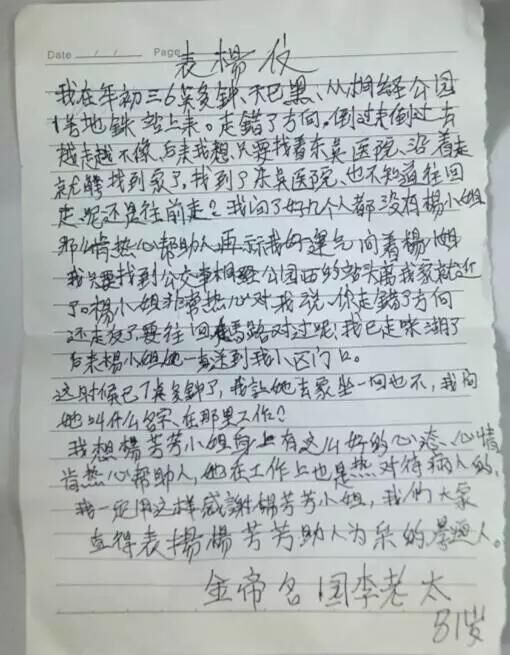 Date / / Page
表楊仪
我在年初三6点多钟、天巴黑、从桐经公园
1号地铁站上来。走错了方向。倒过走倒过去
越走越不像、后来我想、只要找着东吴医院、沿着走
就能找到家了，找到了东吴医院、也不知道往回
走呢还是往前走？我问了好几个人都没有楊小姐
那么情热心帮助人再示我的運气问着楊小姐
我只要找到公交車桐经公园西的站头离我家就近
了。楊小姐非常热心对我说、你走错了方向
还走反了，要往回走馬路对过呢、我已走咪湖了
后来楊小姐她一直送到我小区门口。
这时候已7点多钟了，我說她去家坐一回也不，我问
她叫什么名字、在那里工作？
我想楊芳芳小姐身上有这么好的心态、心情
情热心帮助人，她在工作上也是热对待病人的，
我一定用这样感謝楊芳芳小姐，我們大家
应得表揚楊芳芳助人为乐的普通人。
金帝名国李老太
81岁